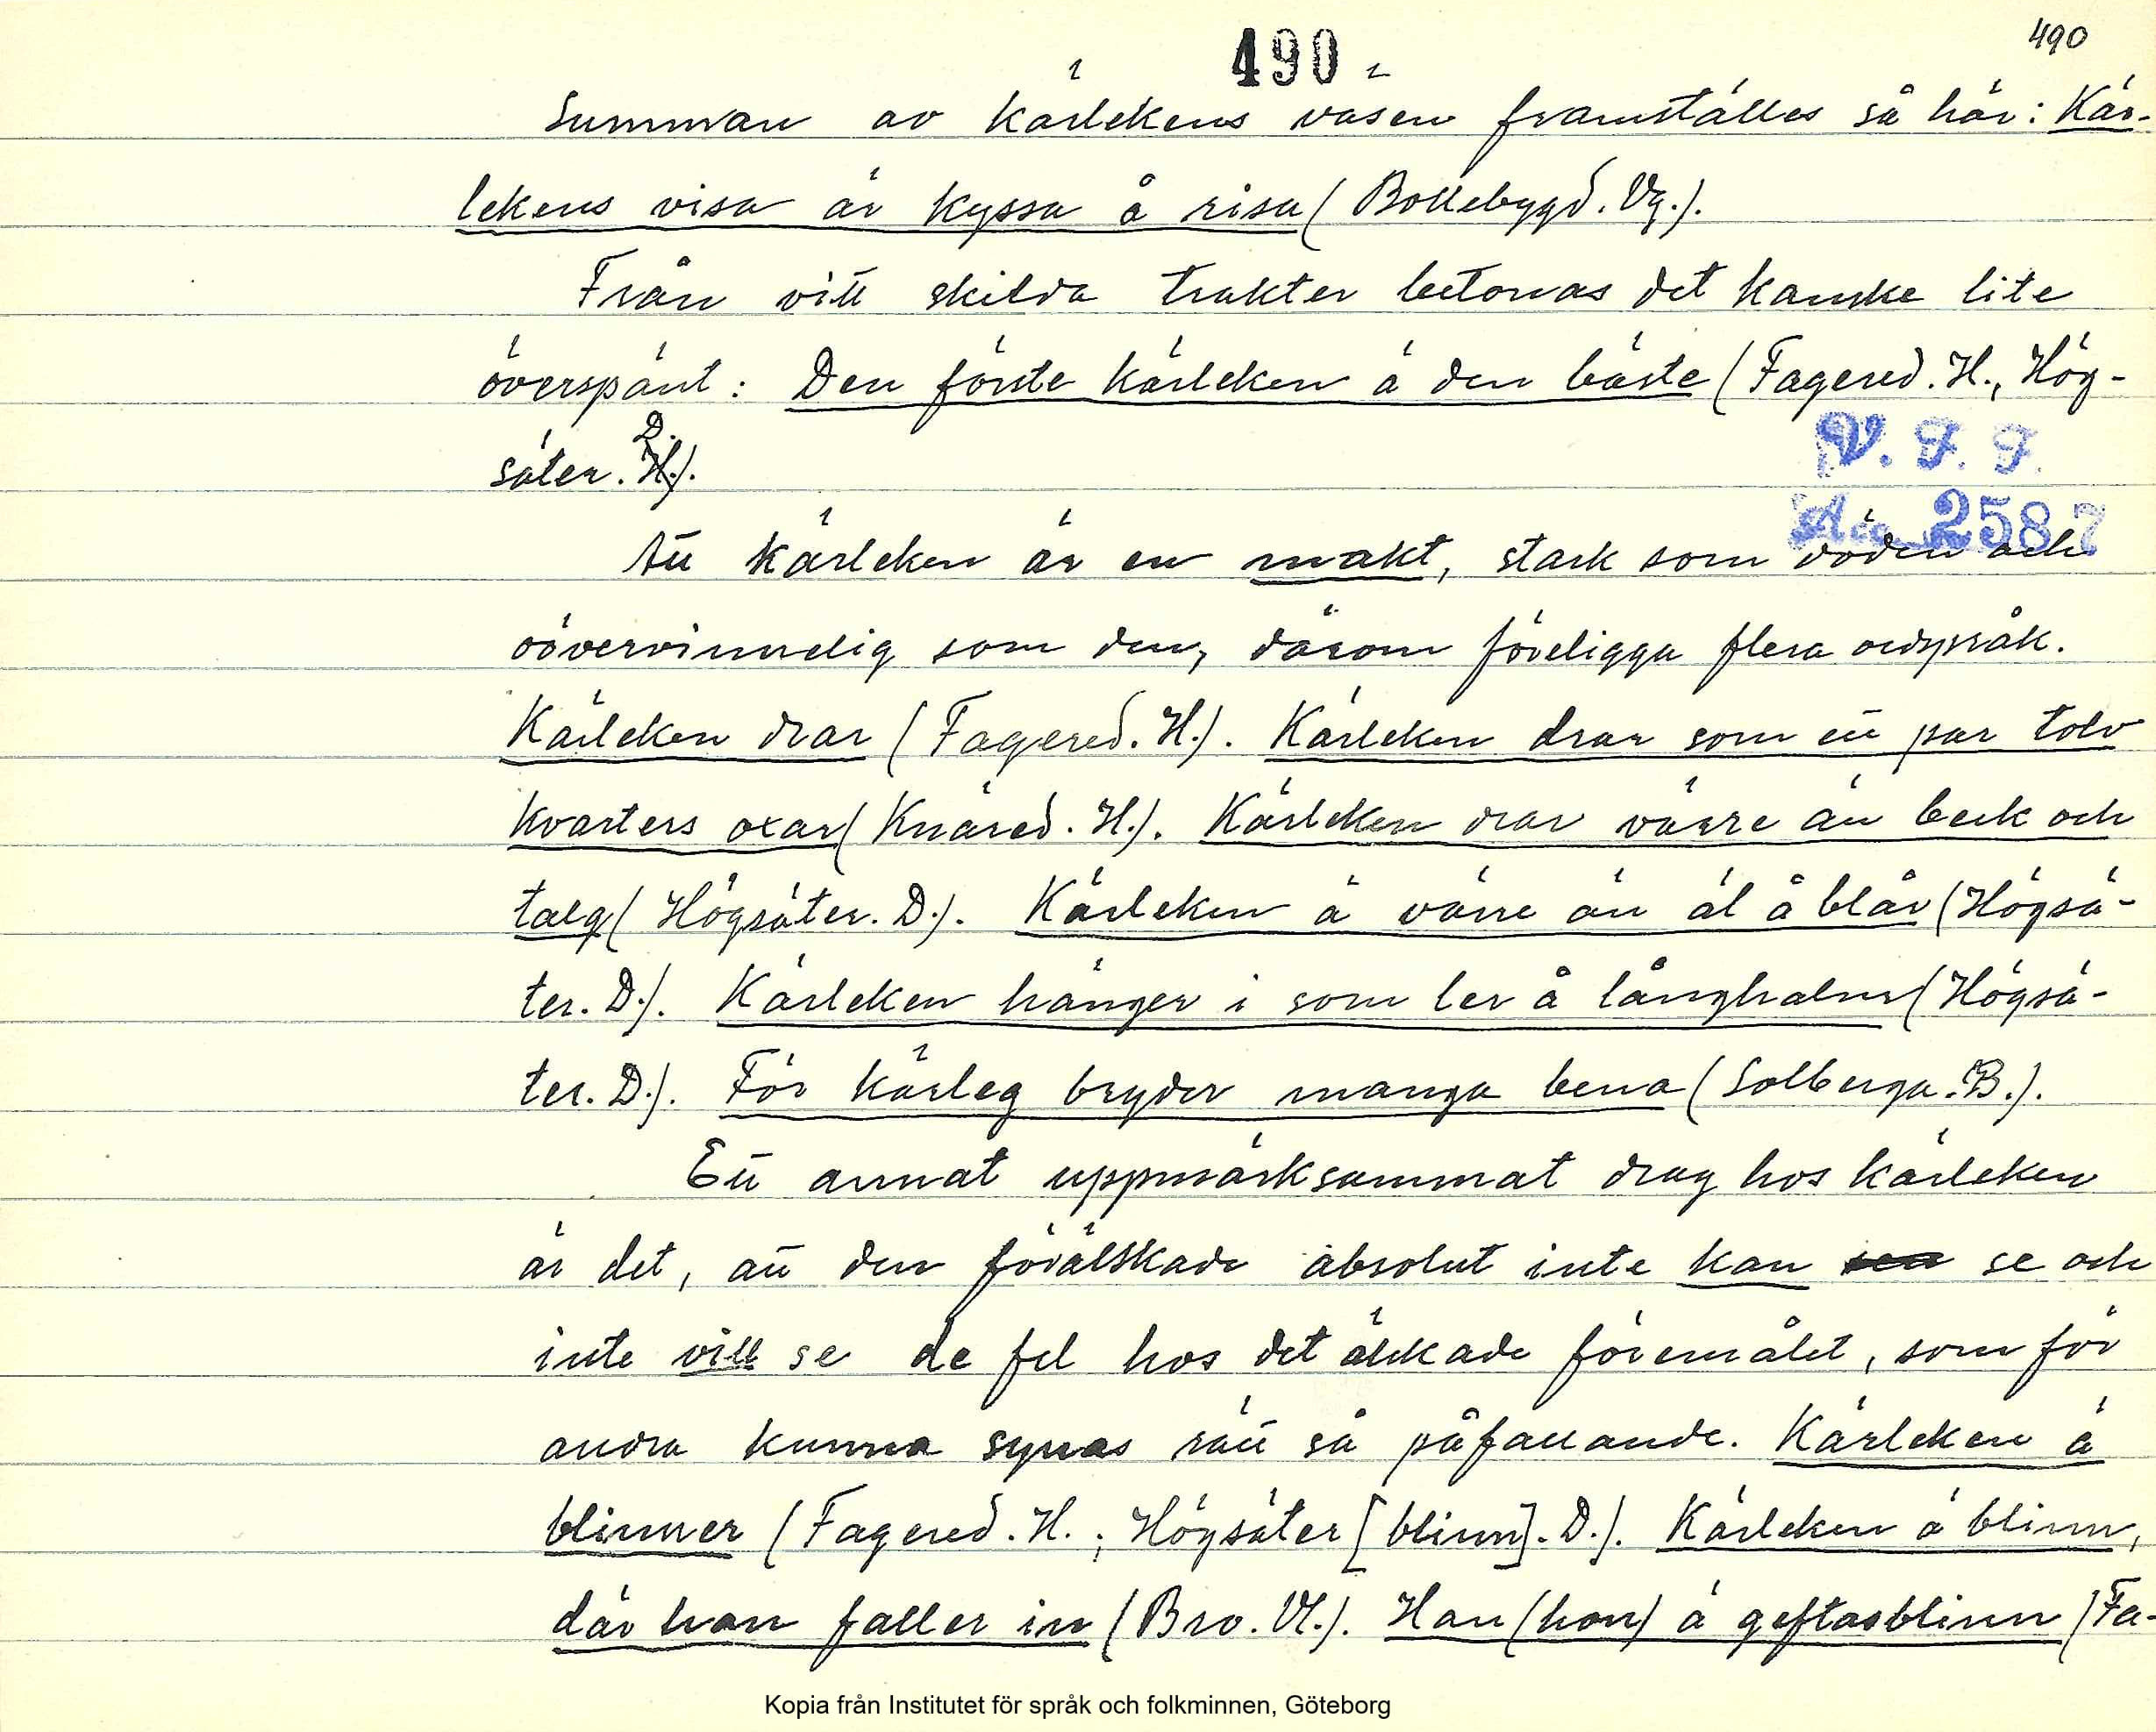 490
490
Summan av kärlekens väsen framställes så här: Kär-
lekens visa är kyssa å risa (Bollebygd. Vg.).
Från vitt skilda trakter betonas det kanske lite
överspänt: Den förste kärleken ä den bäste (Fagered. H., Hög-
säter. D.).
V. F. F.
Acc. 2587
Att kärleken är en makt, stark som döden och
oövervinnelig som den, därom föreligga flera ordspråk.
Kärleken drar (Fagered. H.). Kärleken drar som ett par tolv
kvarters oxar (Knäred. H.). Kärleken drar värre än beck och
talg (Högsäter. D.). Kärleken ä värre än ål å blår (Högsä-
ter. D.). Kärleken hänger i som ler å långhalm (Högsä-
ter. D.). För kärleg bryder manga bena (Solberga. B.).
Ett annat uppmärksammat drag hos kärleken
är det, att den förälskade absolut inte kan se och
inte vill se de fel hos det älskade föremålet, som för
andra kunna synas rätt så påfallande. Kärleken ä
blinner (Fagered. H.; Högsäter [blinn]. D.). Kärleken ä blinn,
där han faller in (Bro. Vl.). Han (hon) ä geftasblinn (Fa-
Kopia från Institutet för språk och folkminnen, Göteborg